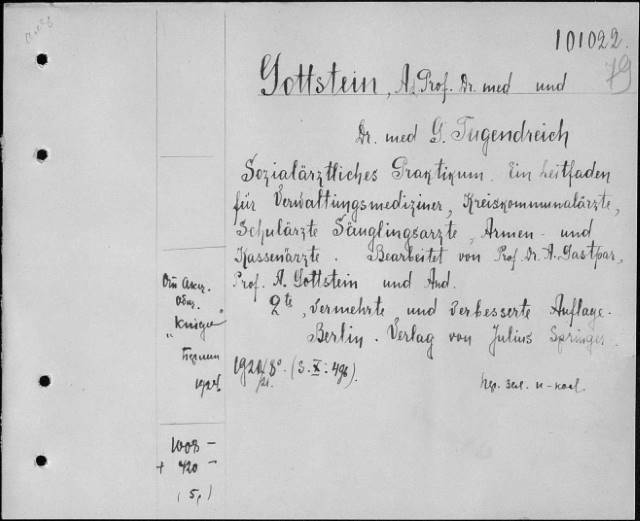 101022.
79
Gottstein, A. Prof. Dr. med und
Dr. med G. Tugendreich
Sozialärztliches Praktikum. Ein Leitfaden
für Verwaltungsmediziner, Kreiskommunalärzte,
Schulärzte Säuglingsarzte, Armen- und
Kassenärzte. Bearbeitet von Prof. Dr. A. Gastpar,
Prof. A. Gottstein und And.
2te, vermehrte und verbesserte Auflage.
Berlin. Verlag von Julius Springer.
"Книга"
Берлин
8°. (3. X: 496).
1008 -
+ 420 -
(5,)